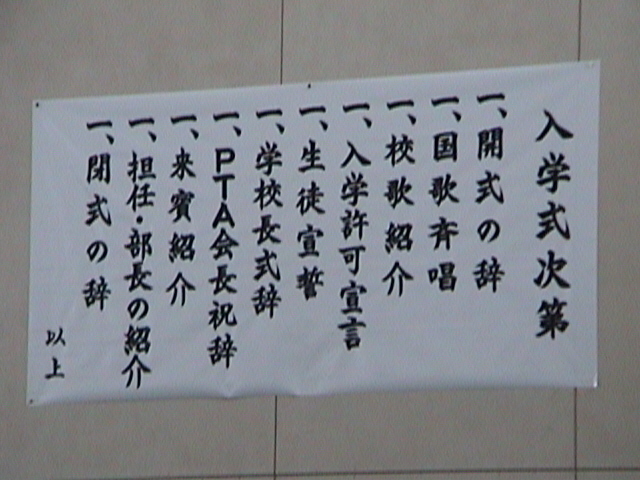 入学式次第
一、開式の辞
一、国歌斉唱
一、校歌紹介
一、入学許可宣言
一、生徒宣誓
一、学校長式辞
一、PTA会長祝辞
一、来賓紹介
一、担任・部長の紹介
一、閉式の辞
以上